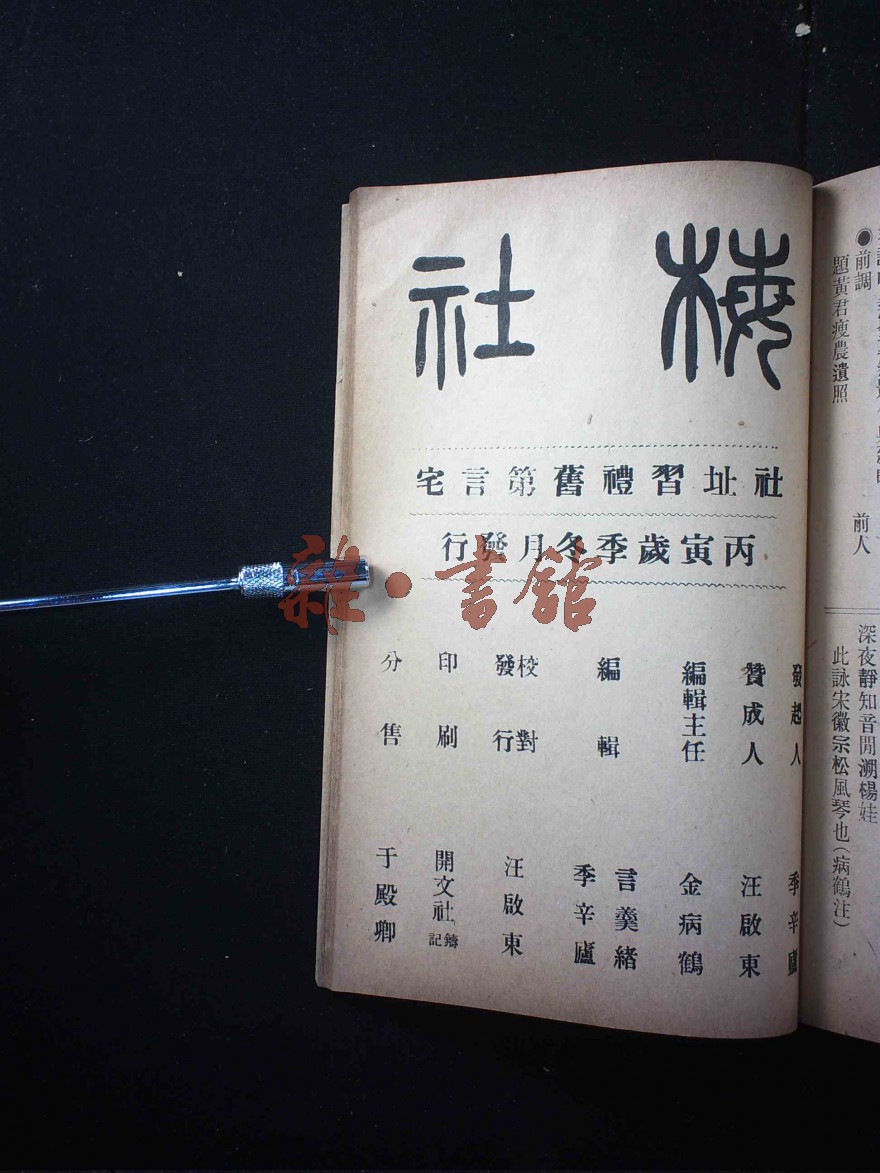 梅社
社址習禮舊第言宅
丙寅歲季冬月發行
發起人 季辛廬
贊成人 汪啟東
編輯主任 金病鶴
編輯 言羹緒 季辛廬
校對 發行 汪啟東
印刷 開文社鑄記
分售 于殿卿
雜·書館
●前調
前人
題黃君瘦農遺照
深夜靜知音閒溯楊娃
此詠宋徽宗松風琴也(病鶴注)